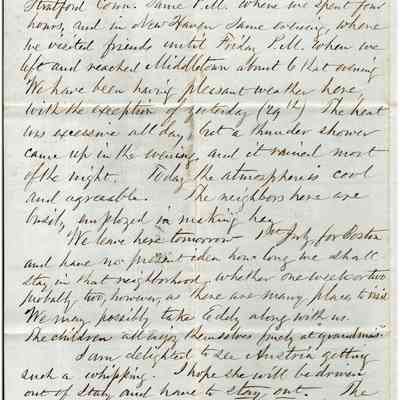 Stratford Conn. same P.M. where we spent four
hours, and in New Haven same evening, where
we visited friends until Friday P.M. when we
left and reached Middletown about 6 that evening
We have been having pleasant weather here,
with the exception of yesterday (29th) The heat
was excessive all day, but a thunder shower
came up in the evening, and it rained most
of the night. Today the atmosphere is cool
and agreeable. The neighbors here are
busily employed in making hay.
We leave here tomorrow 1st July for Boston
and have no present idea how long we shall
stay in that neighborhood, whether one week or two
probably two, however, as there are many places to visit
We may possibly take Eddy along with us.
The children all enjoy themselves finely at "grandma's"
I am delighted to see Austria getting
such a whipping. I hope she will be driven
out of Italy and have to stay out. The